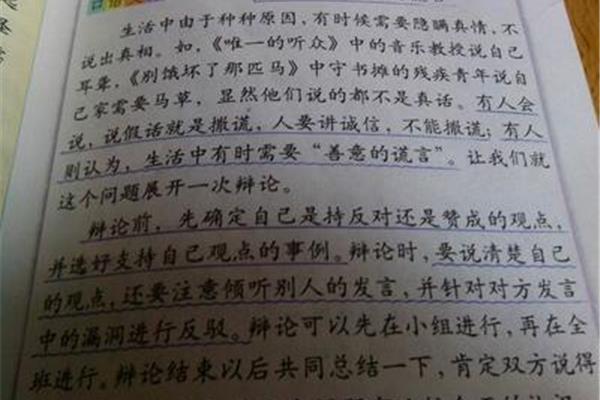 口语
生活中由于种种原因，有时候需要隐瞒真情，不
说出真相。如，《唯一的听众》中的音乐教授说自己
耳聋，《别饿坏了那匹马》中守书摊的残疾青年说自
己家需要马草，显然他们说的都不是真话。有人会
说，说假话就是撒谎，人要讲诚信，不能撒谎；有人
则认为，生活中有时需要“善意的谎言”。让我们就
这个问题展开一次辩论。
辩论前，先确定自己是持反对还是赞成的观点，
并选好支持自己观点的事例。辩论时，要说清楚自己
的观点，还要注意倾听别人的发言，并针对对方发言
中的漏洞进行反驳。辩论可以先在小组进行，再在全
班进行。辩论结束以后共同总结一下，肯定双方说得